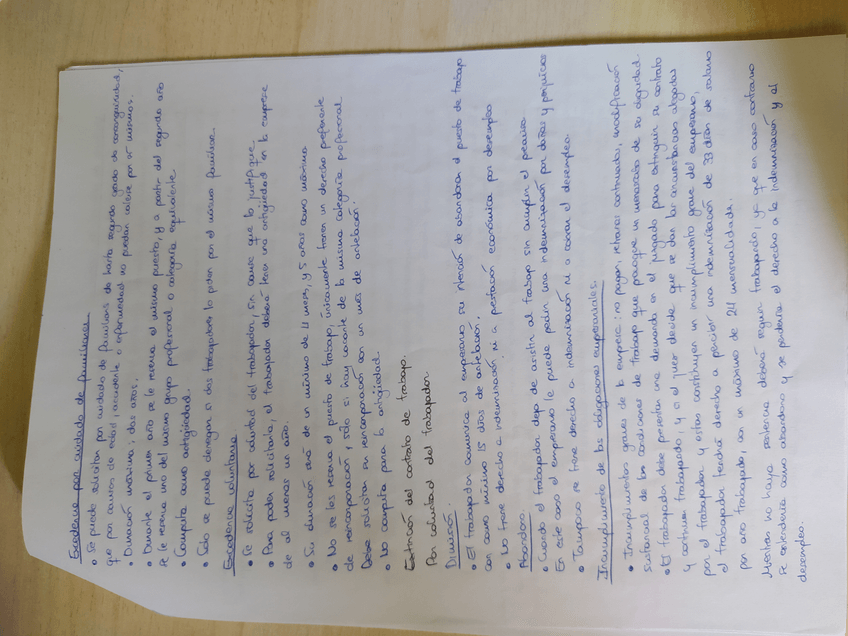 Excedencia por cuidado de familiares
• Se puede solicitar por cuidado de familiares de hasta segundo grado de consanguinidad,
que por causas de edad, accidente o enfermedad no puedan valerse por sí mismos.
• Duración máxima: dos años.
• Durante el primer año se le reserva el mismo puesto, y a partir del segundo año
se le reserva uno del mismo grupo profesional o categoría equivalente.
• Computa como antigüedad.
• Solo se puede denegar si dos trabajadores lo piden por el mismo familiar.
Excedencia voluntaria
• Se solicita por voluntad del trabajador, sin causa que lo justifique.
• Para poder solicitarla, el trabajador deberá tener una antigüedad en la empresa
de al menos un año.
• Su duración será de un mínimo de 4 meses, y 5 años como máximo.
• No se les reserva el puesto de trabajo, únicamente tienen un derecho preferente
de reincorporación, sólo si hay vacante de la misma categoría profesional.
Debe solicitar su reincorporación con un mes de antelación.
• No computa para la antigüedad.
Extinción del contrato de trabajo.
Por voluntad del trabajador.
Dimisión.
• El trabajador comunica al empresario su intención de abandonar el puesto de trabajo
con como mínimo 15 días de antelación.
• No tiene derecho a indemnización ni a prestación económica por desempleo
Abandono.
• Cuando el trabajador deja de asistir al trabajo sin cumplir el preaviso.
En este caso el empresario le puede pedir una indemnización por daños y perjuicios
• Tampoco se tiene derecho a indemnización ni a cobrar el desempleo.
Incumplimiento de las obligaciones empresariales.
• Incumplimientos graves de la empresa: no pagar, retrasos continuados, modificación
sustancial de las condiciones de trabajo que provoque un menoscabo de su dignidad.
• El trabajador debe presentar una demanda en el juzgado para extinguir su contrato
y continuar trabajando, y si el juez decide que se dan las circunstancias alegadas
por el trabajador y estas constituyen un incumplimiento grave del empresario,
el trabajador tendrá derecho a percibir una indemnización de 33 días de salario
por año trabajado, con un máximo de 24 mensualidades.
Mientras no haya sentencia deberá seguir trabajando, ya que en caso contrario
se entendería como abandono y se perdería el derecho a la indemnización y al
desempleo.